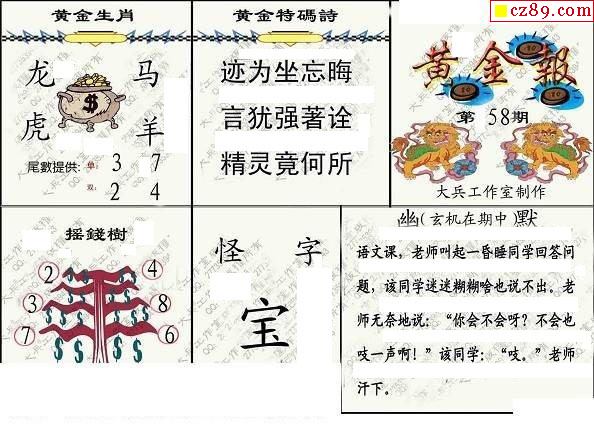 cz89.com
黄金生肖
龙 马
虎 羊
尾數提供: 单: 3 7
双: 2 4
黄金特碼詩
迹为坐忘晦
言犹强著诠
精灵竟何所
黄金報
第 58期
大兵工作室制作
摇錢樹
2 4
3 8
7 6
怪 字
宝
幽(玄机在期中)默
语文课，老师叫起一昏睡同学回答问
题，该同学迷迷糊糊啥也说不出。老
师无奈地说：“你会不会呀？不会也
吱一声啊！”该同学：“吱。”老师
汗下。